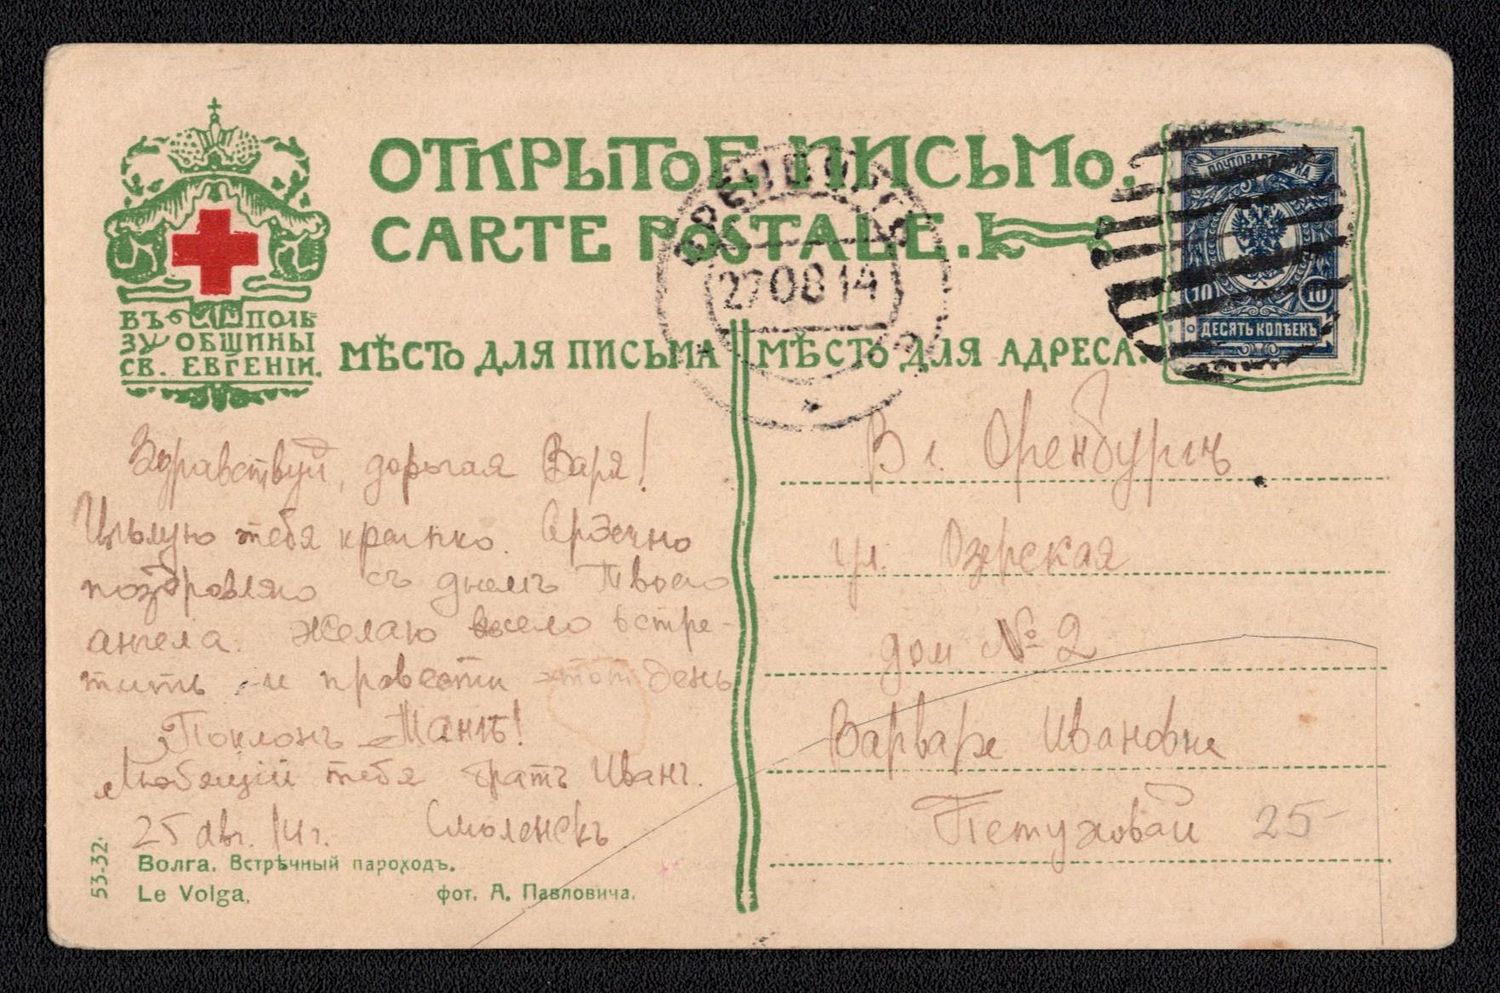 ОТКРЫТОЕ ПИСЬМО.
CARTE POSTALE.
ВЪ ПОЛЬ-
ЗУ ОБЩИНЫ
СВ. ЕВГЕНІИ.
МѢСТО ДЛЯ ПИСЬМА
МѢСТО ДЛЯ АДРЕСА.
27 08 14
ПОЧТОВАЯ МАРКА
10 10
ДЕСЯТЬ КОПѢЕКЪ
Здравствуй, дорогая Варя!
Цѣлую тебя крѣпко. Сердечно
поздровляю съ днемъ Твоего
ангела. Желаю весело встре-
тить и провести этот день
Поклонъ Манѣ!
Любящій тебя братъ Иванъ.
25 авг. 14 г. Смоленскъ
В г. Оренбургъ
ул. Озерская
дом № 2
Варваре Ивановне
Петуховой 25-
53-32.
Волга. Встрѣчный пароходъ.
Le Volga.
фот. А. Павловича.